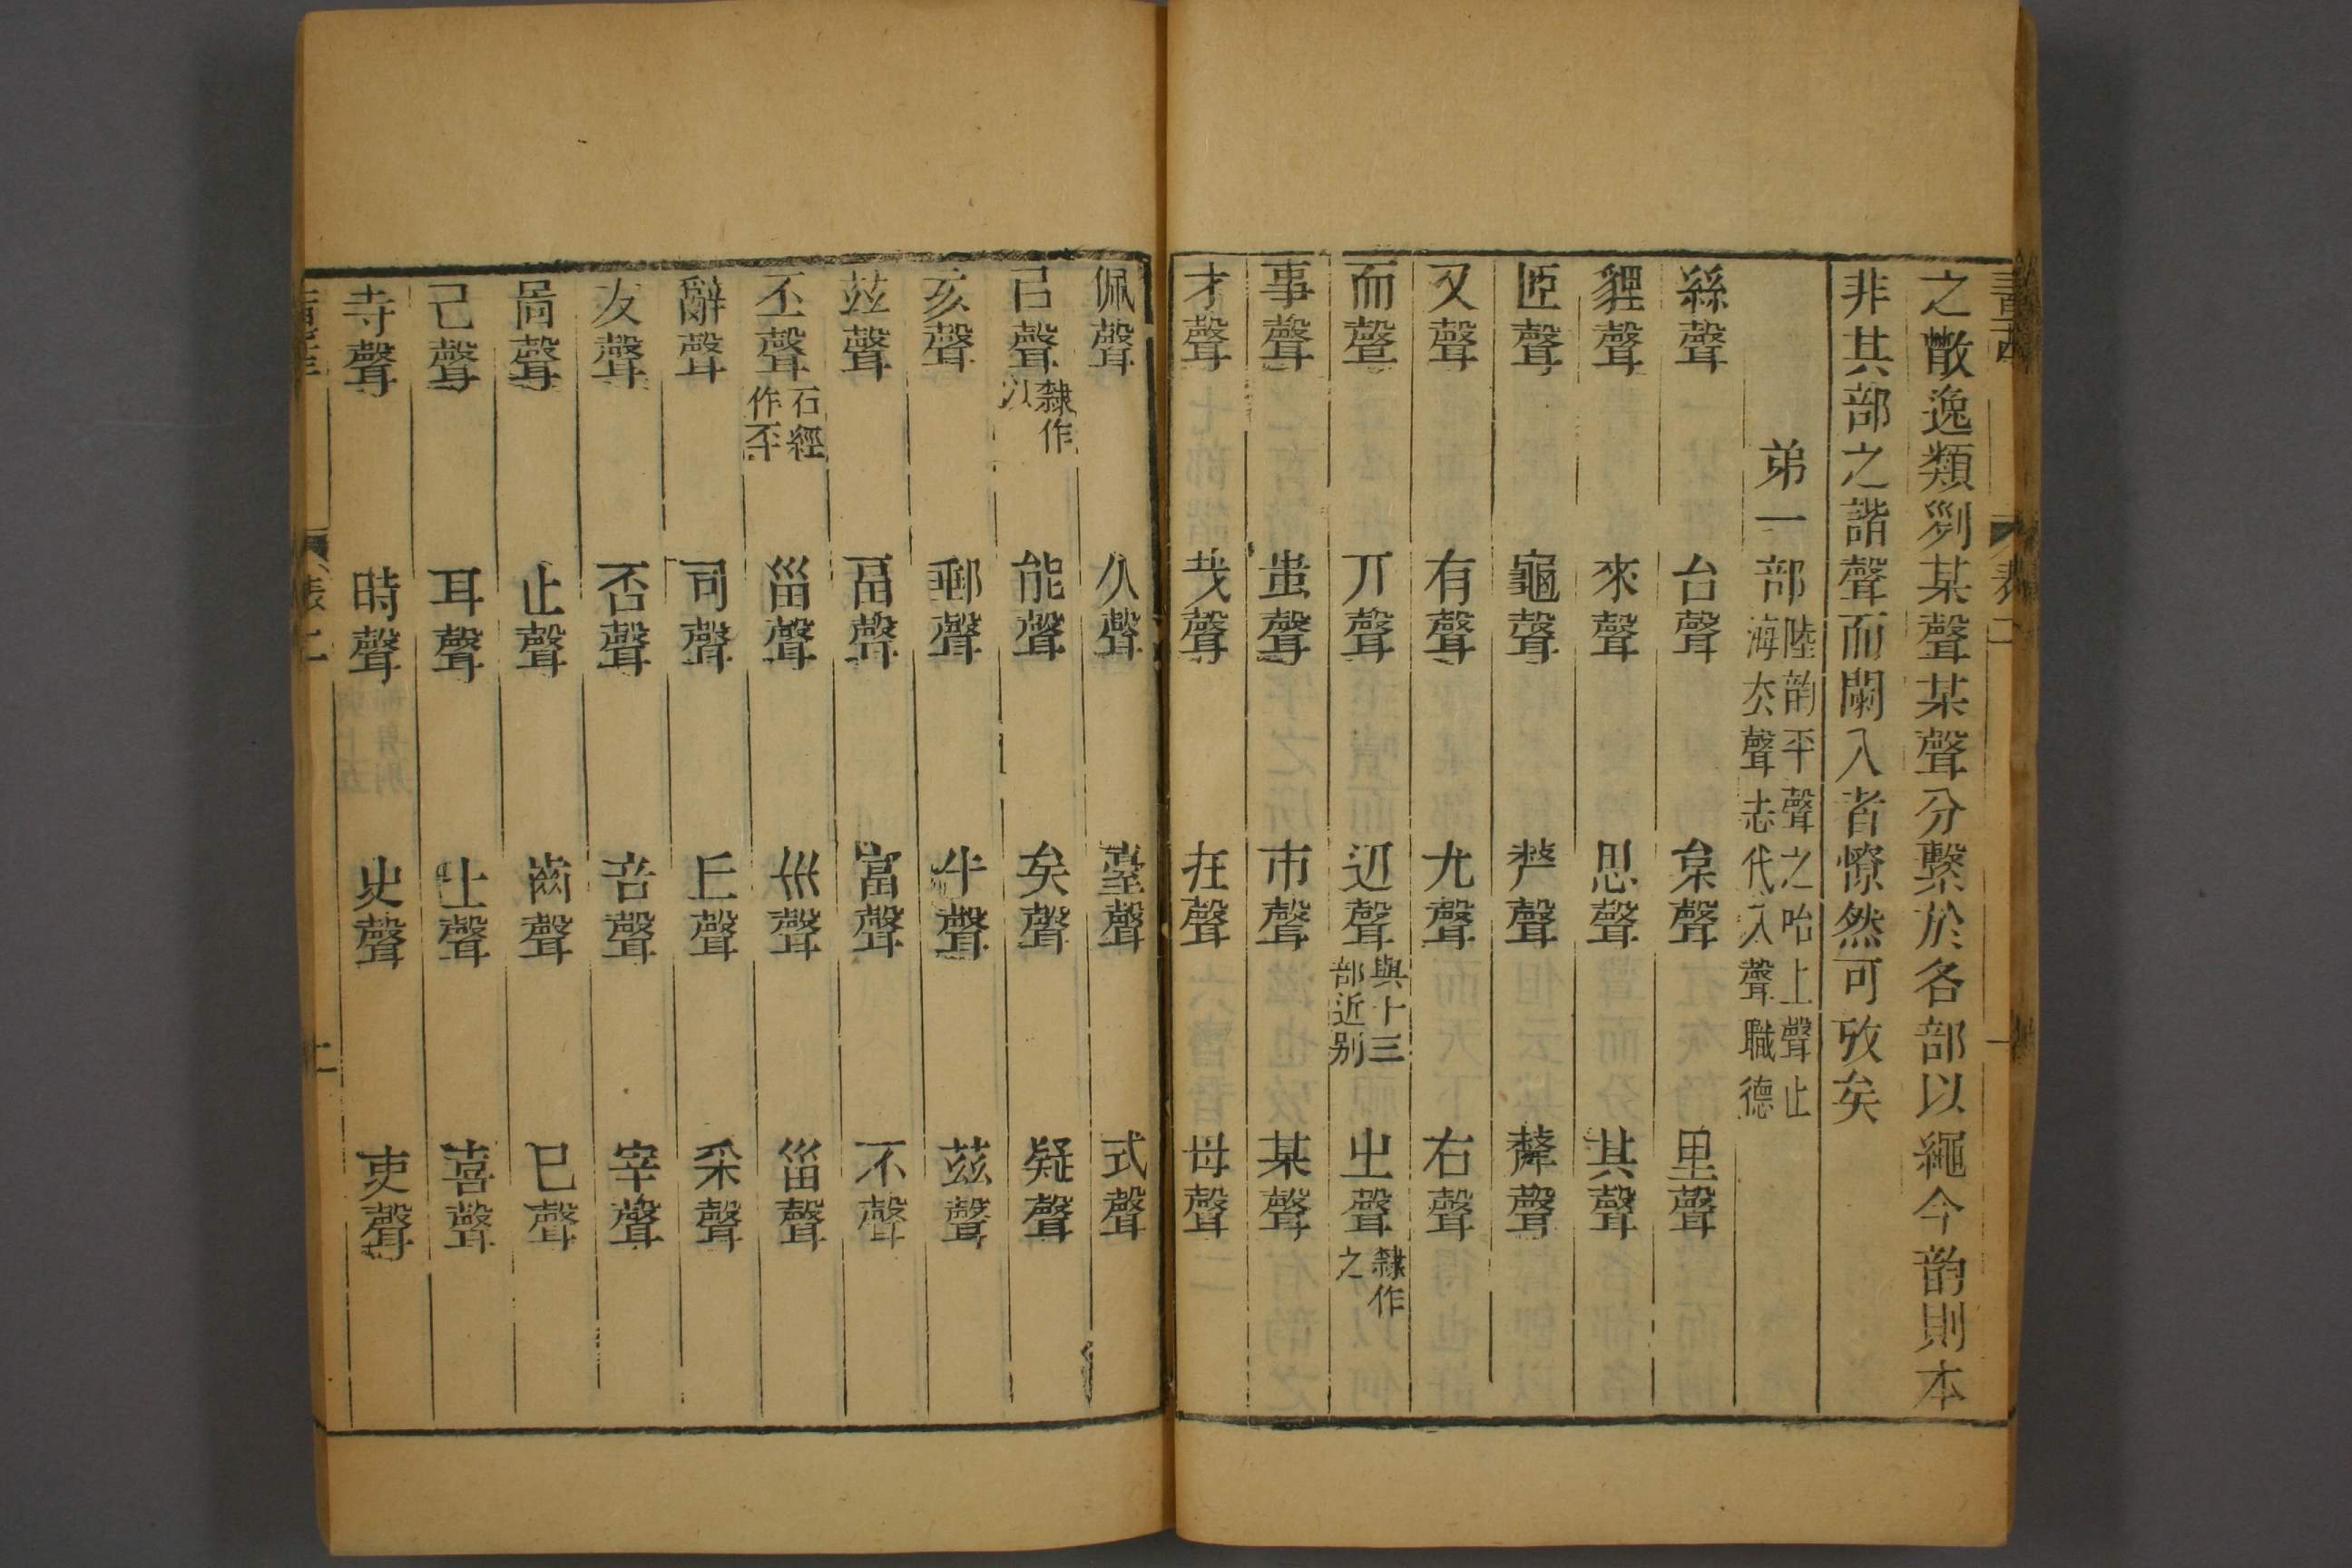 之㪚逸類𠛱某聲某聲分繫於各部以繩今韵則本
非其部之諧聲而闌入者憭然可攷矣
弟一部陸韵平聲之咍上聲止
海去聲志代入聲職德
絲聲 台聲 枲聲 里聲
貍聲 來聲 思聲 其聲
𦣞聲 龜聲 𠩺聲 氂聲
又聲 有聲 尤聲 右聲
而聲 丌聲 辺聲與十三
部近別 㞢聲隸作
之
事聲 蚩聲 市聲 某聲
才聲 𢦏聲 在聲 母聲
佩聲 久聲 臺聲 弍聲
㠯聲隸作
以 能聲 矣聲 疑聲
亥聲 郵聲 牛聲 茲聲
玆聲 畐聲 富聲 不聲
丕聲石經
作㔻 甾聲 𡿧聲 甾聲
辭聲 司聲 丘聲 采聲
友聲 否聲 咅聲 宰聲
啚聲 止聲 齒聲 巳聲
己聲 耳聲 士聲 喜聲
寺聲 時聲 史聲 吏聲
表二
二